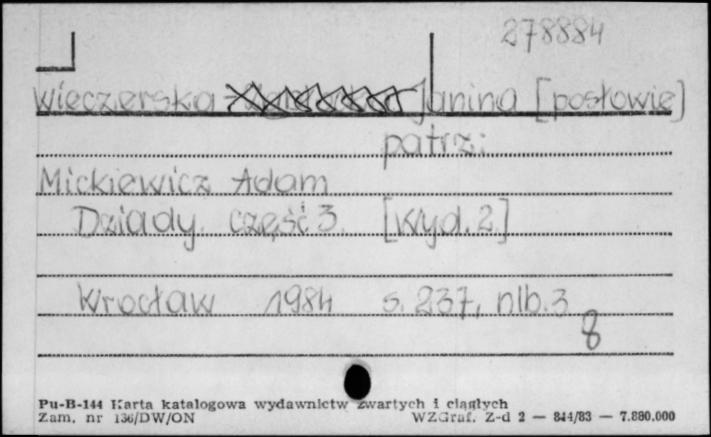 278884
Wieczerska Janina [posłowie]
patrz:
Mickiewicz Adam
Dziady. Część 3. [Wyd. 2.]
Wrocław 1984 s. 237, nlb. 3
8
Pu-B-144 Karta katalogowa wydawnictw zwartych i ciągłych
Zam. nr 136/DW/ON WZGraf. Z-d 2 — 844/83 — 7.880.000